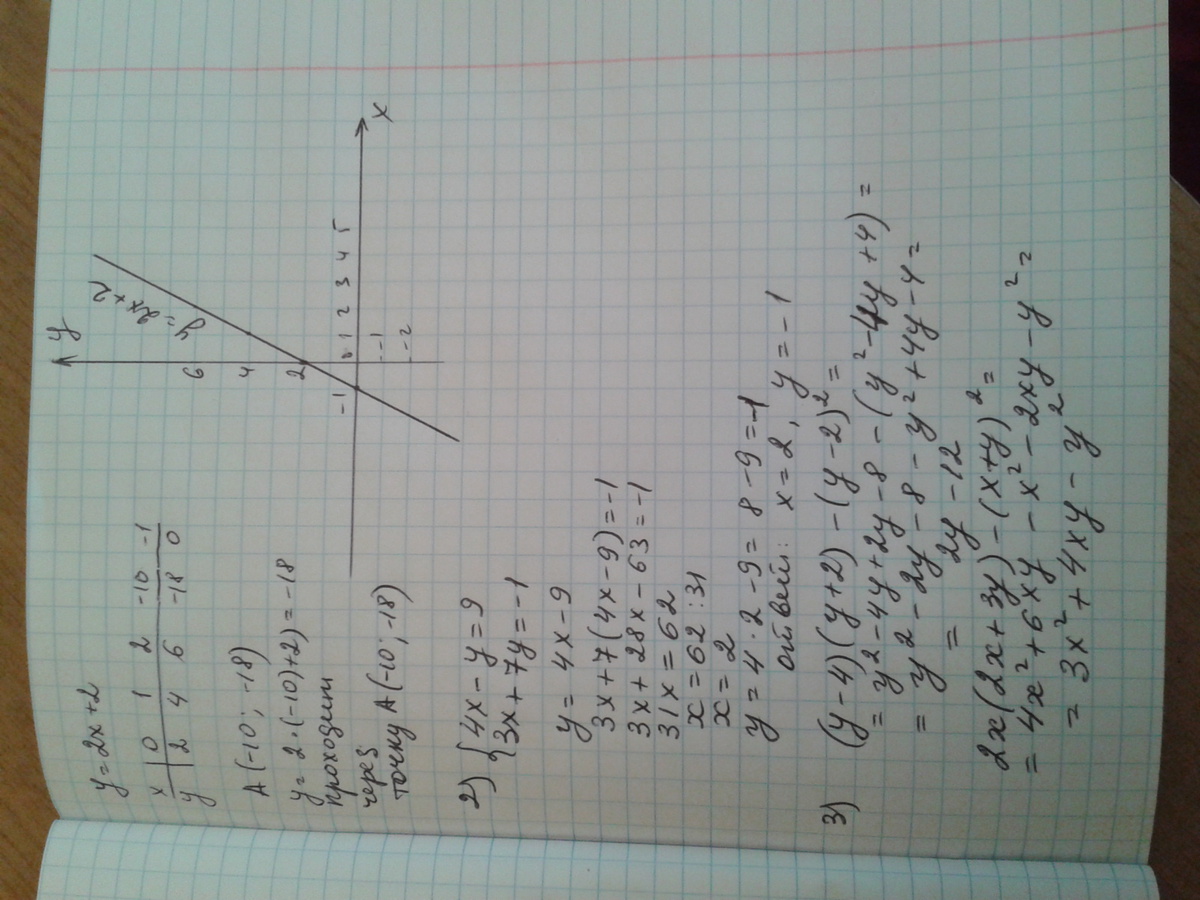 y = 2x+2
x | 0 1 2 -10 -1
y | 2 4 6 -18 0
A (-10; -18)
y = 2·(-10)+2) = -18
проходит
через
точку A (-10; -18)
y
y = 2x+2
6
4
2
-1 0 1 2 3 4 5
x
-1
-2
2) { 4x - y = 9
3x + 7y = -1
y = 4x - 9
3x + 7(4x - 9) = -1
3x + 28x - 63 = -1
31x = 62
x = 62 : 31
x = 2
y = 4·2 - 9 = 8 - 9 = -1
ответ: x = 2, y = -1
3) (y-4)(y+2) - (y-2)² =
= y² - 4y + 2y - 8 - (y² - 4y + 4) =
= y² - 2y - 8 - y² + 4y - 4 =
= 2y - 12
2x(2x+3y) - (x+y)² =
= 4x² + 6xy - x² - 2xy - y² =
= 3x² + 4xy - y²